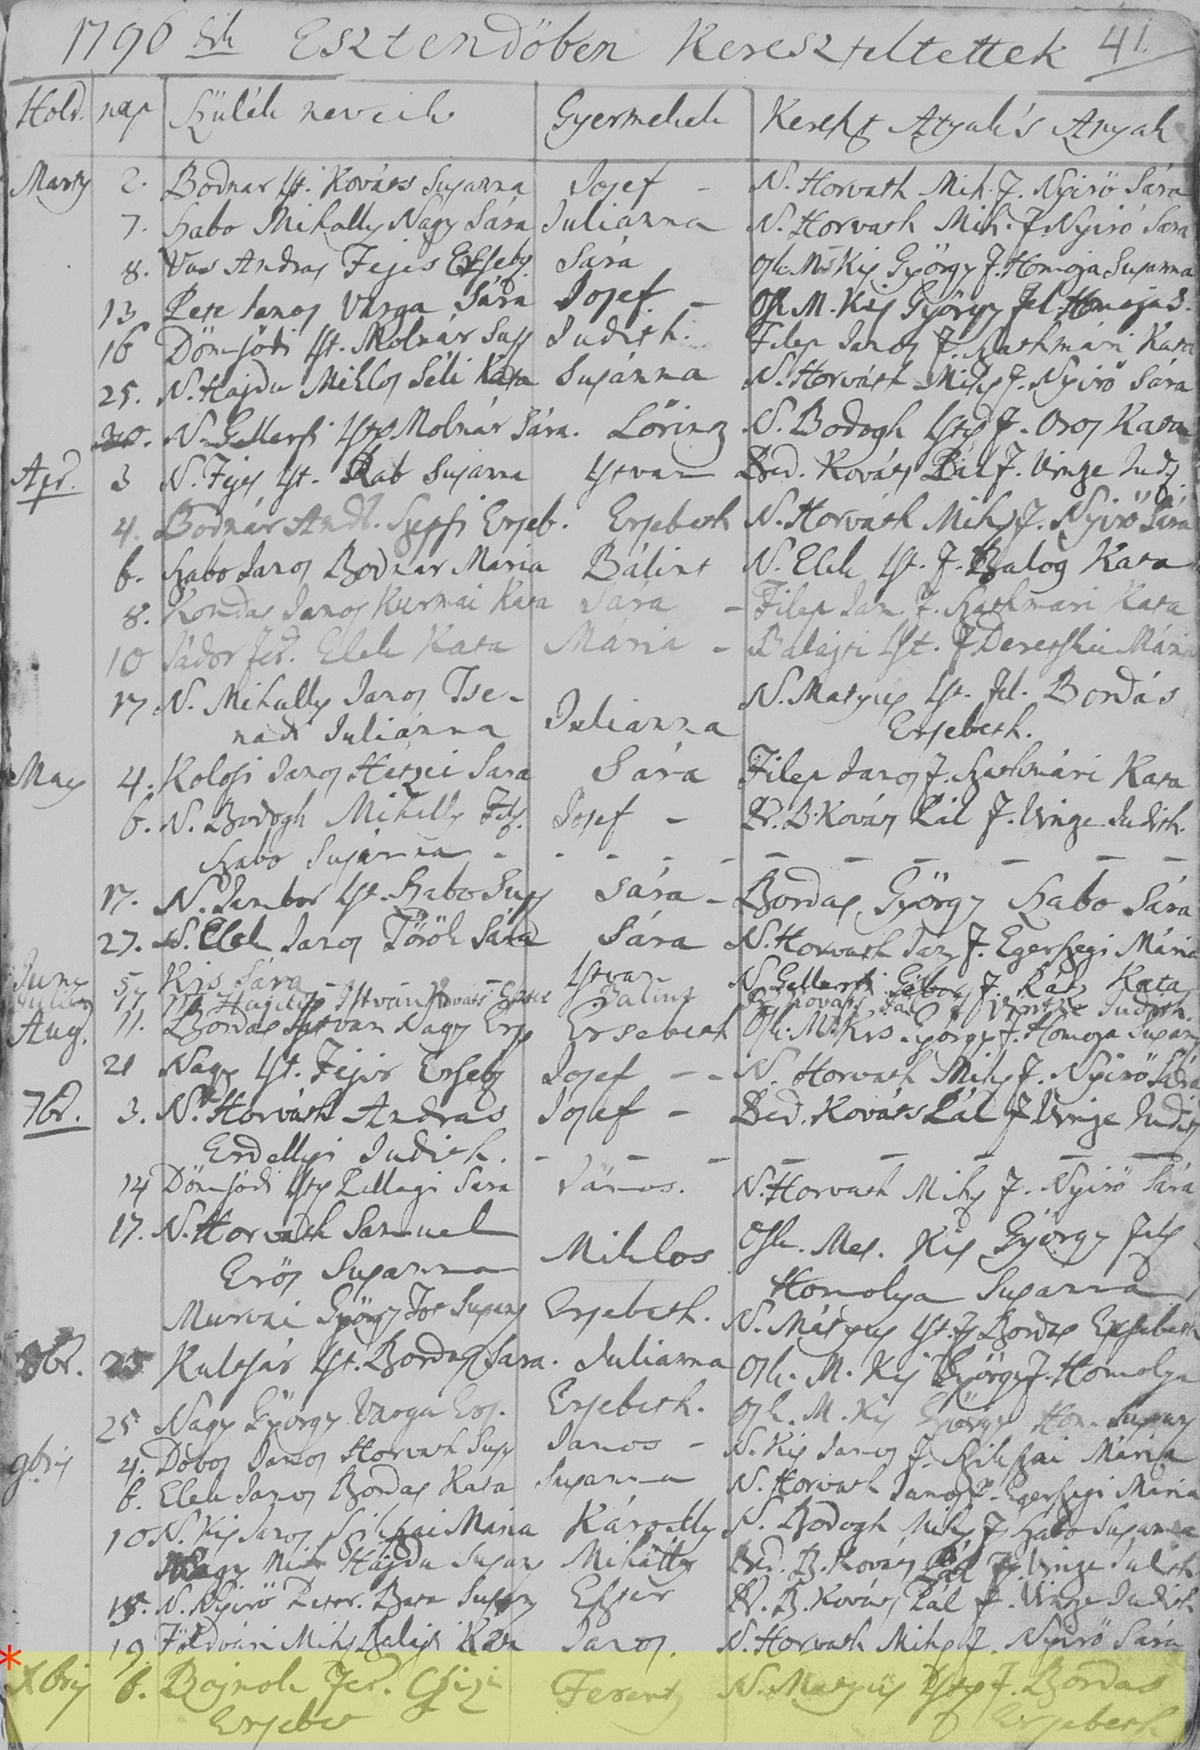 1796 dik Esztendöben Kereszteltettek 41.
Hold. nap Szülék neveik Gyermekek Kereszt Atyak's Anyak
Marty 2. Bodnar Ist. Kováts Susanna Josef - N. Horvath Mih. F. Nyirö Sára
7. Szabo Mihally Nagy Sára Julianna N. Horvath Mih. F. Nyirö Sara
8. Vas Andras Fejes Ersebet Sára Kis György F. Homoja Susanna
13 Pete Janos Varga Sára Josef - M. Kis György Fel. Homoja S.
16 Dömsödi Ist. Molnár Sus Judith. Filep Janos F. Szathmári Kata
25. N. Hajdu Miklos Séli Kata Susánna N. Horváth Mihs F. Nyirö Sára
30. N. Gellerfi Molnár Sára. Lörincz N. Bodogh F. Oros Kata
Apr. 3 N. Fejes Ist. Rab Susanna Istvan Kováts Pál F. Vinge Judi
4. Bodnár And. Szepsi Erseb. Ersebeth N. Horváth Mihs F. Nyirö Sára
6. Szabo Janos Bodnar Maria Bálint N. Elek Ist. F. Balog Kata
8. Kondas Janos Kata Sara - Filep Jan. F. Szathmari Kata
10 Sádor Fer. Elek Kata Mária - Balajti Ist. F. Deretskei Mária
17 N. Mihally Janos Tse-
nadi Juliánna Julianna N. Matyus Ist. fel. Bordás
Ersebeth.
May 4. Kolosi Janos Sara Sára Filep Janos F. Szathmári Kata
6. N. Bodogh Mihally Josef - B. Kováts Pál F. Vinge Judith.
Szabo Susánna - - - - - - - - -
17. N. Jambor Ist. Szabo Sus Sára - Bordas György Szabo Sára
27. N. Elek Janos Török Sára Sára N. Horvath Jan. F. Egerszegi Mária
Juny 5. Kis Sára Istvan N. Gellerfi Gabor F. Kata
Julius 17 Istvan Kovats Balint Kovats Pal F. Judith.
Aug. 11. Bordas Istvan Nagy Ers Ersebeth M. Kis György F. Homoja Susan
21 Nagy Ist. Fejir Erseb Josef - - N. Horvath Mihs F. Nyirö Sára
7br. 3. N. Horváth Andras Josef - Kováts Pál F. Vinge Judit
Erdellyi Judith. - - - - - - -
14 Dömsödi Pellegi Sara János. N. Horvath Mihs F. Nyirö Sára
17. N. Horvath Samuel
Erös Susanna Miklos Mes. Kis György Fels
Homolya Susanna
Murvai György Susan Ersebeth. N. Mátyus Ist. F. Bordas Ersebeth
8br. 25 Kultsár Ist. Bordas Sara. Julianna M. Kis György F. Homolya
25 Nagy György Varga Ers. Ersebeth. M. Kis György Hom. Susan
9bris 4. Dobos Janos Horvath Sus Janos - N. Kis Janos F. Szikszai Maria
6. Elek Janos Bordas Kata Susanna N. Horvath Janos F. Egerszegi Maria
10 N. Kis Janos Szikszai Maria Károlly N. Bodogh Mihs F. Szabo Susanna
Nagy Hajdu Susan Mihálly B. Kováts Pál F. Vinge Judith
15. N. Nyirö Peter. Susan Eszter B. Kováts Pál F. Vinge Judith
19. Földvári Mihs Kata Janos. N. Horvath Mihs F. Nyirö Sára
*
Xbris 6. Bojnok Fer. Csizi Ferentz N. Matyus F. Bordas
Ersebet Ersebeth